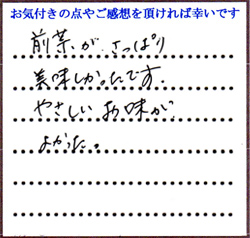 お気付きの点やご感想を頂ければ幸いです
前菜がさっぱり
美味しかったです.
やさしいお味が
よかった。